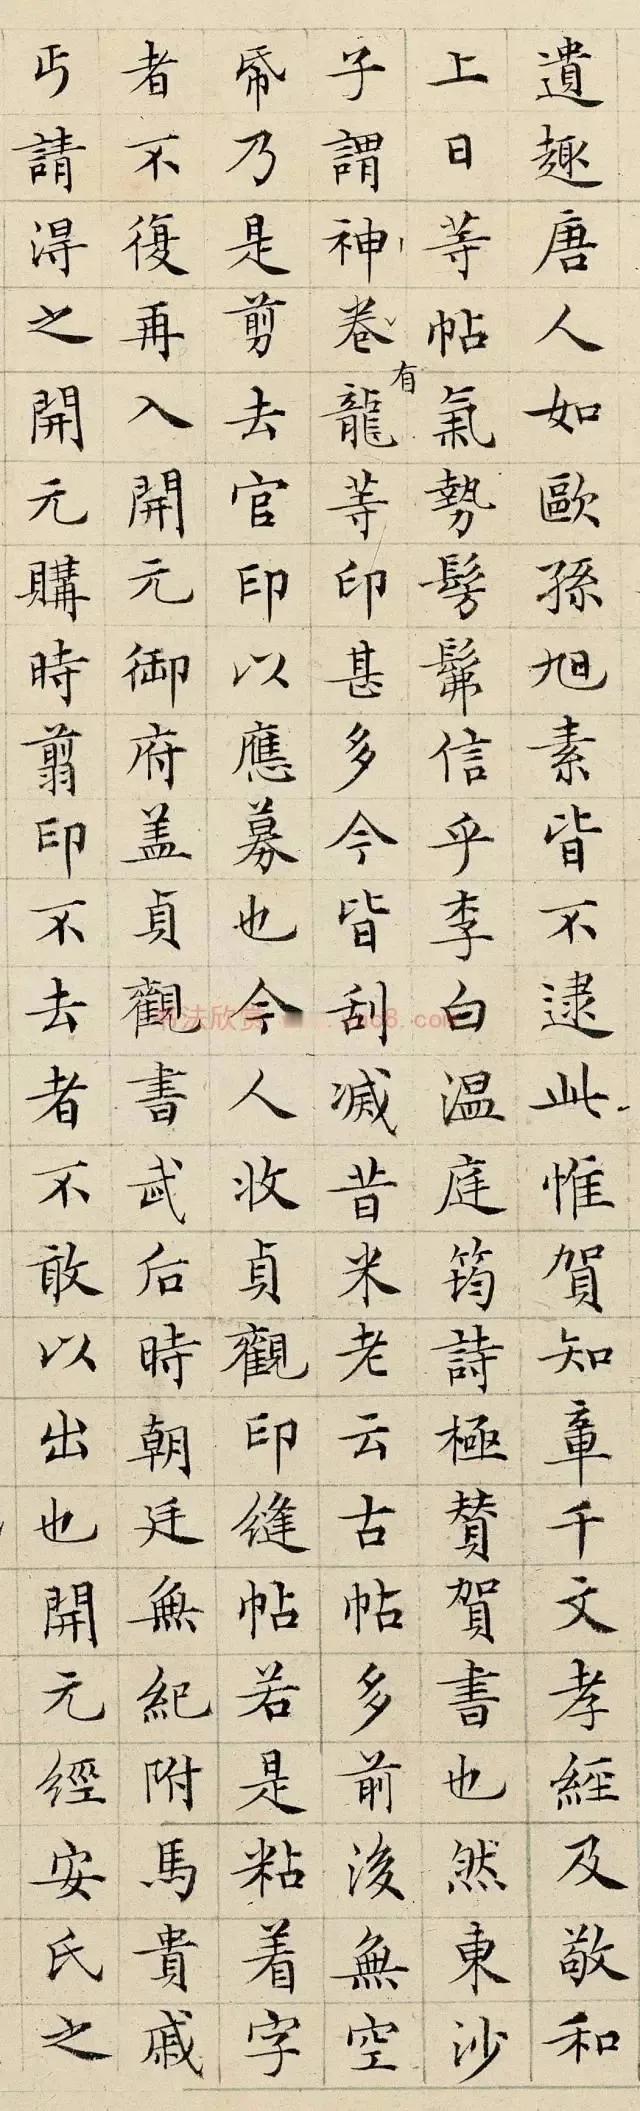 遺趣唐人如歐孫旭素皆不逮此惟賀知章千文孝經及敬和
上日等帖氣勢髣髴信乎李白温庭筠詩極賛賀書也然東沙
子謂神卷有龍等印甚多今皆刮减昔米老云古帖多前後無空
帋乃是剪去官印以應募也今人收貞觀印縫帖若是粘着字
者不復再入開元御府盖貞觀書武后時朝廷無紀附馬貴戚
丐請得之開元購時翦印不去者不敢以出也開元經安氏之